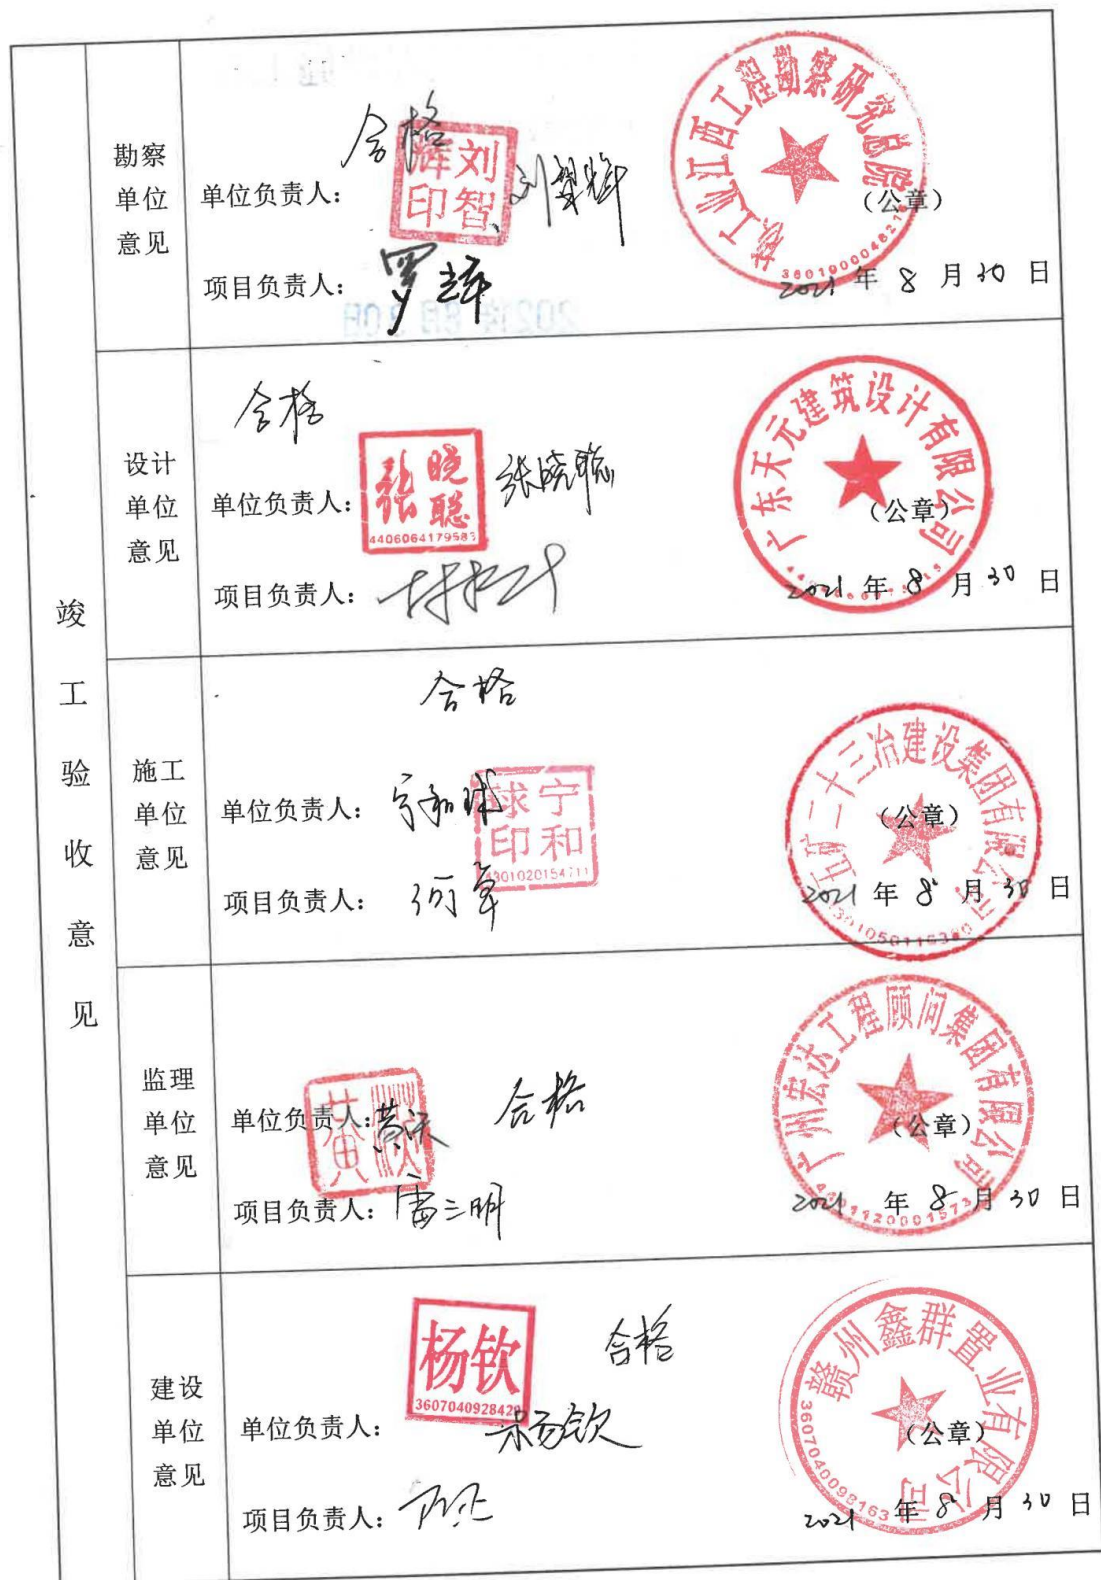 竣工验收意见
勘察单位意见
合格
单位负责人：
刘智辉印
刘智辉
项目负责人：
罗
核工业江西工程勘察研究总院
（公章）
2021 年 8 月 30 日
设计单位意见
合格
单位负责人：
张晓聪
4406064179583
张晓聪
项目负责人：
广东天元建筑设计有限公司
（公章）
2021 年 8 月 30 日
施工单位意见
合格
单位负责人：
宁和球
宁和球印
4301020154711
项目负责人：
五矿二十三冶建设集团有限公司
（公章）
2021 年 8 月 30 日
监理单位意见
单位负责人：
黄
合格
项目负责人：
雷三明
广州宏达工程顾问集团有限公司
（公章）
2021 年 8 月 30 日
建设单位意见
杨钦
合格
单位负责人：
杨钦
项目负责人：
赣州鑫群置业有限公司
（公章）
2021 年 8 月 30 日